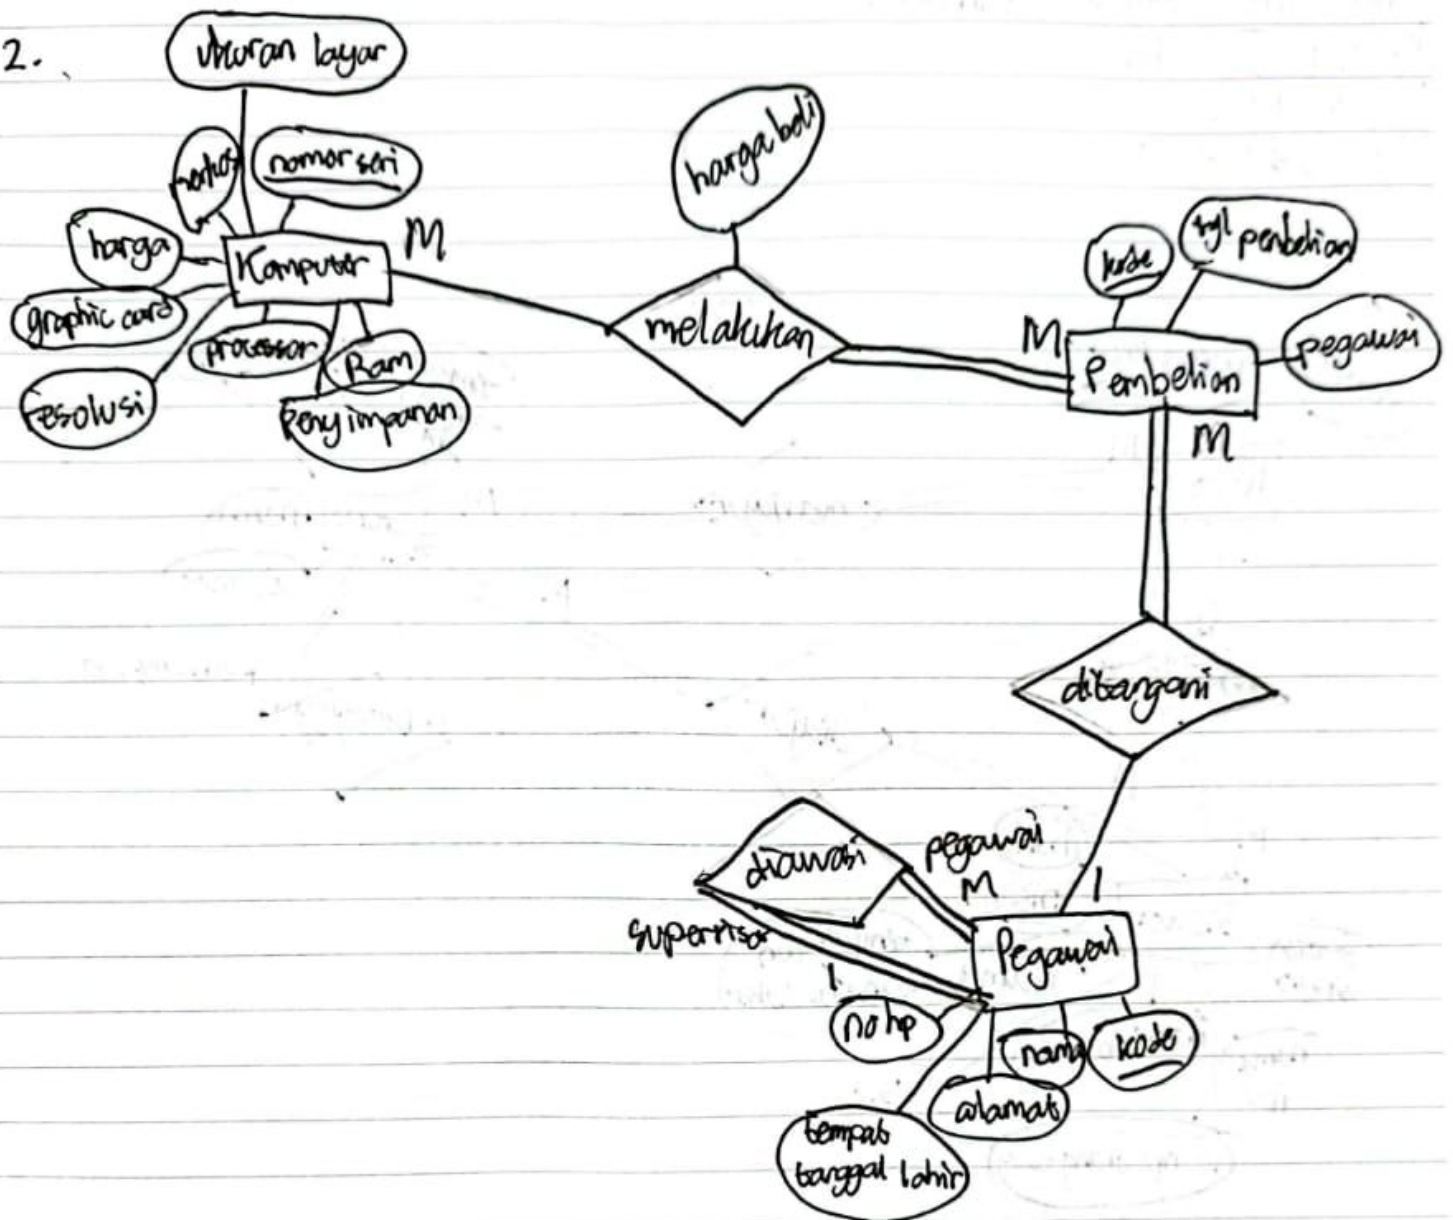 2.
ukuran layar
merk
nomor seri
harga
Komputer
M
graphic card
processor
Ram
resolusi
Penyimpanan
harga beli
melakukan
M
kode
tgl pembelian
Pembelian
pegawai
M
ditangani
diawasi
pegawai
M
1
supervisor
1
Pegawai
no hp
nama
kode
alamat
tempat
tanggal lahir